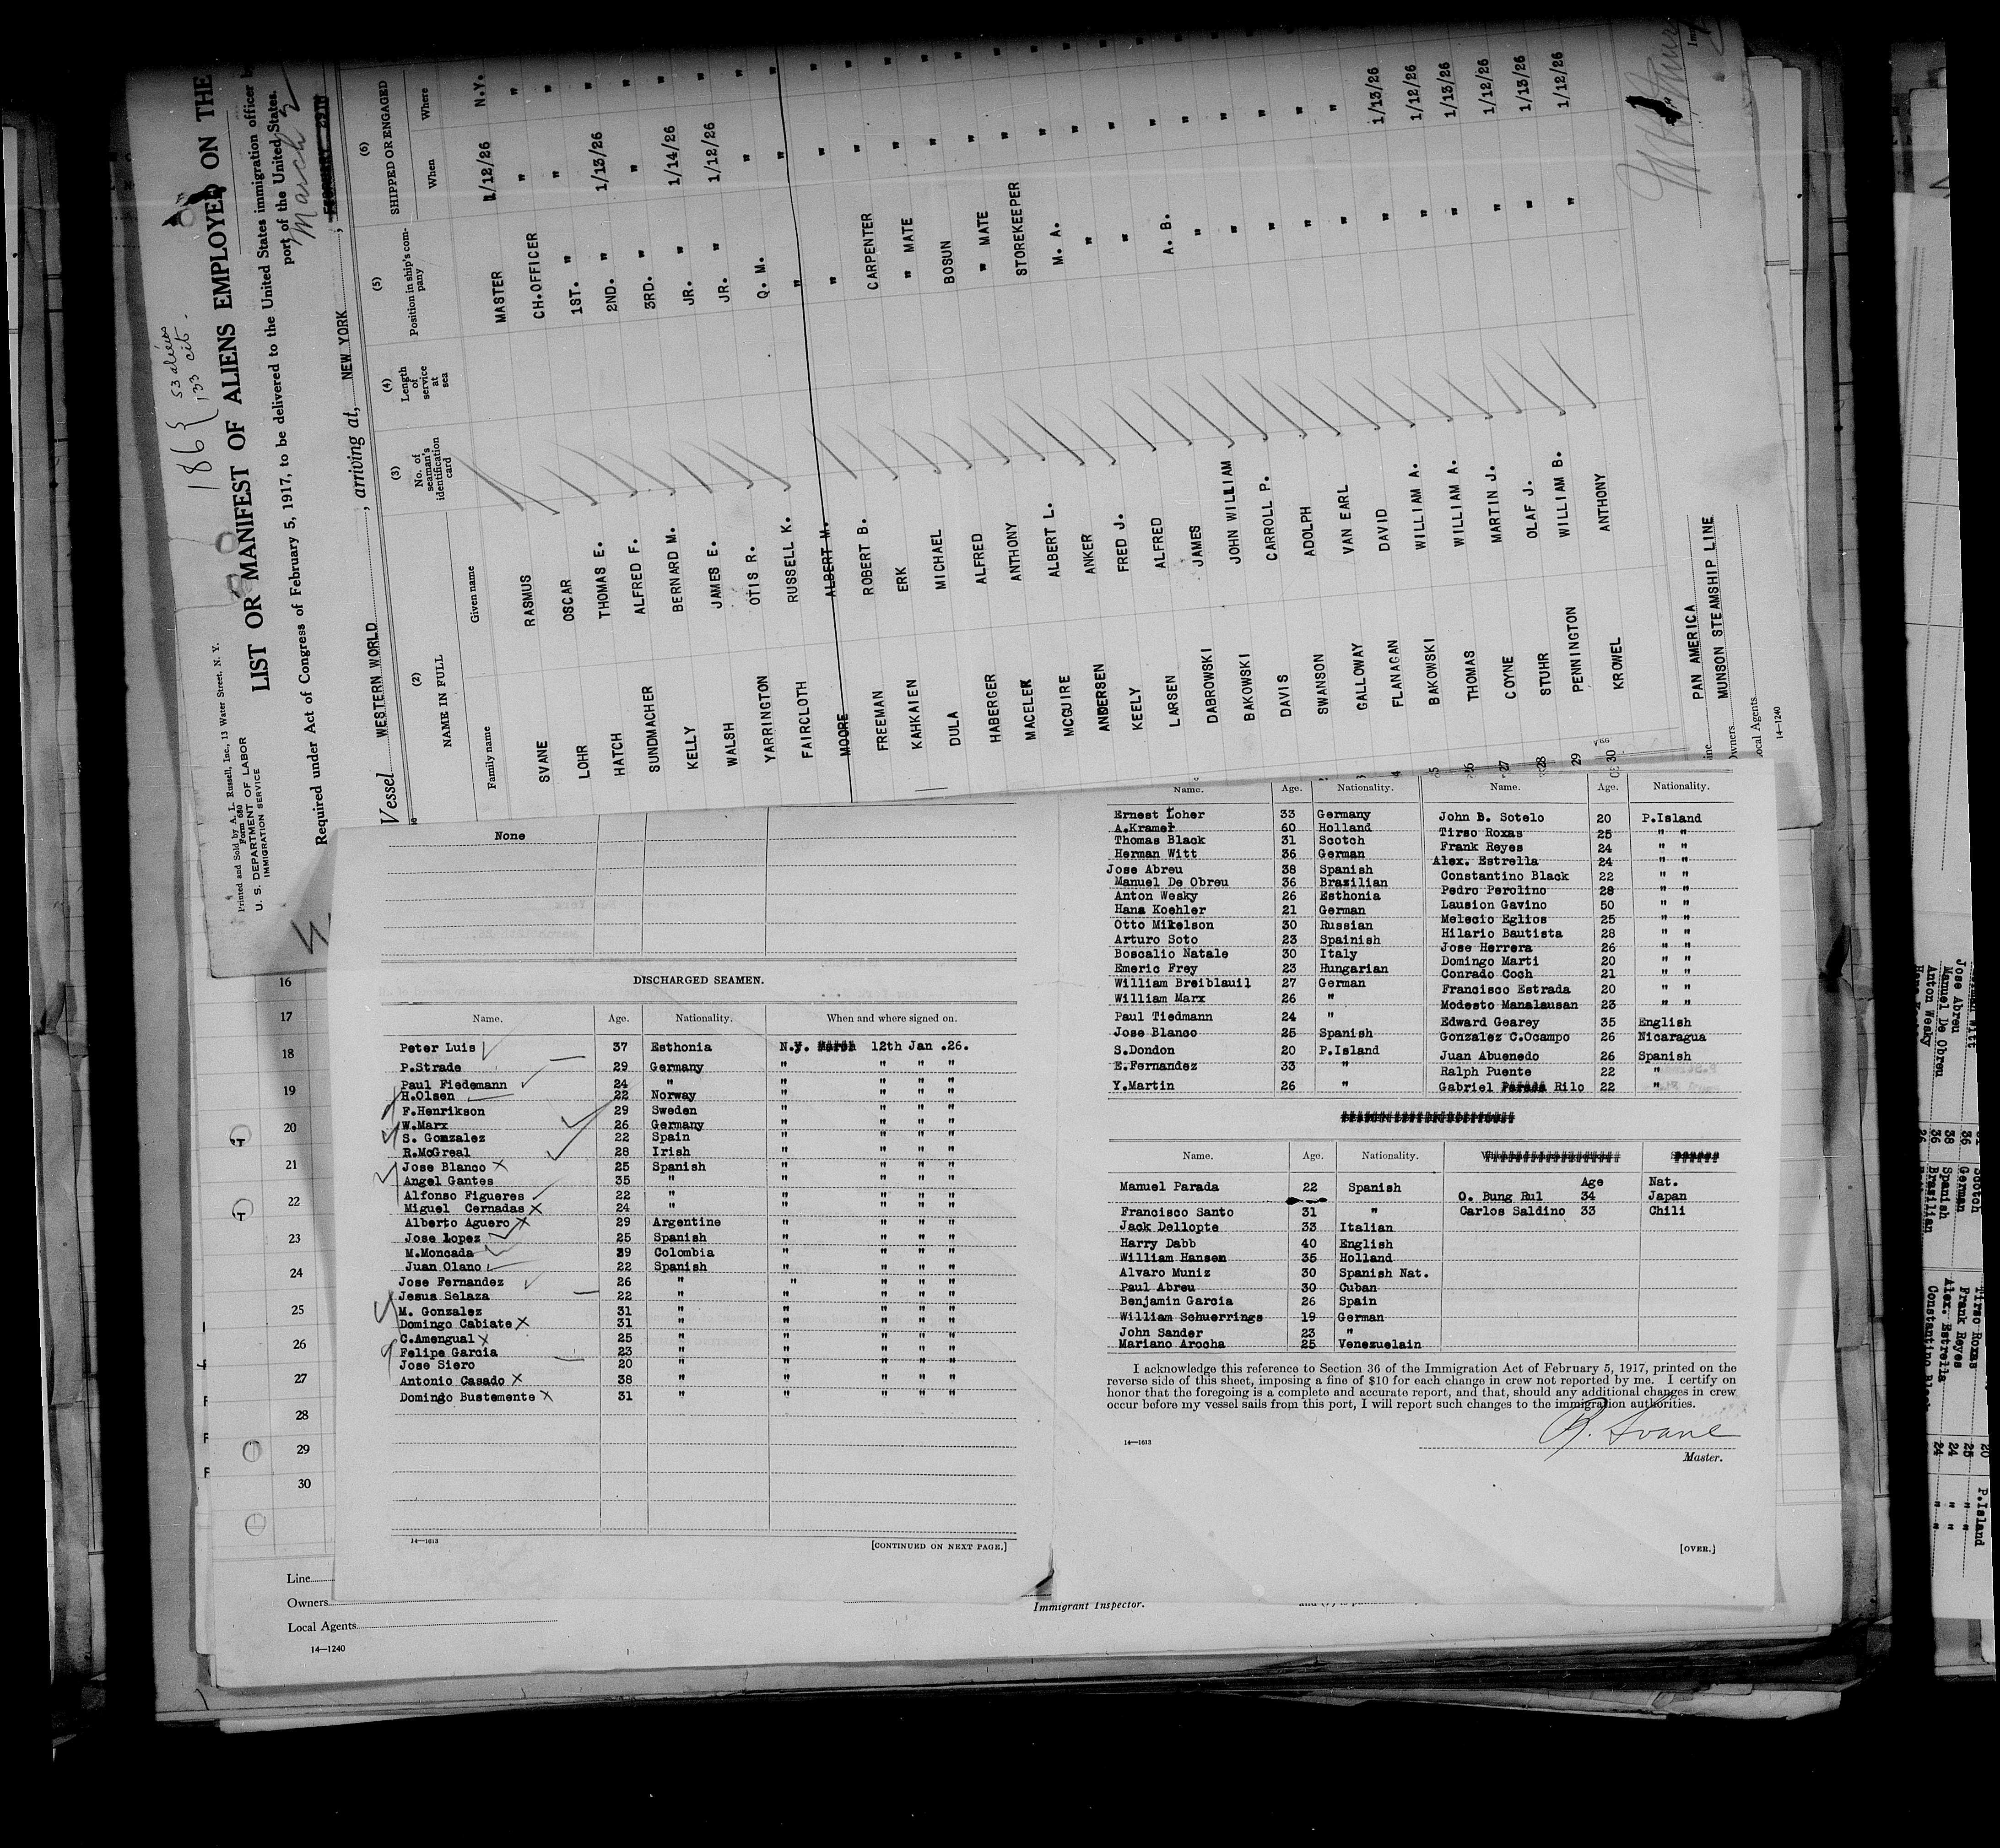 186 { 53 aliens
133 cit.
Printed and Sold by A. L. Russell, Inc., 13 Water Street, N. Y.
Form 680
U. S. DEPARTMENT OF LABOR
IMMIGRATION SERVICE
LIST OR MANIFEST OF ALIENS EMPLOYED ON THE
Required under Act of Congress of February 5, 1917, to be delivered to the United States immigration officer
port of the United States.
Vessel WESTERN WORLD, arriving at, NEW YORK, March 2
(2) (3) (4) (5) (6)
NAME IN FULL No. of seaman's identification card Length of service at sea Position in ship's company SHIPPED OR ENGAGED
Family name Given name When Where
SVANE RASMUS MASTER 1/12/26 N.Y.
LOHR OSCAR CH.OFFICER " "
HATCH THOMAS E. 1ST. " " "
SUNDMACHER ALFRED F. 2ND. " 1/13/26 "
KELLY BERNARD M. 3RD. " " "
WALSH JAMES E. JR. " 1/14/26 "
YARRINGTON OTIS R. JR. " 1/12/26 "
FAIRCLOTH RUSSELL K. Q. M. " "
MOORE ALBERT M. " " "
FREEMAN ROBERT B. " " "
KAHKAIEN ERK CARPENTER " "
DULA MICHAEL " MATE " "
HABERGER ALFRED BOSUN " "
MACELEK ANTHONY " MATE " "
MCGUIRE ALBERT L. STOREKEEPER " "
ANDERSEN ANKER M. A. " "
KEELY FRED J. " " "
LARSEN ALFRED " " "
DABROWSKI JAMES A. B. " "
BAKOWSKI JOHN WILLIAM " " "
DAVIS CARROLL P. " " "
SWANSON ADOLPH " " "
GALLOWAY VAN EARL " " "
FLANAGAN DAVID " "
BAKOWSKI WILLIAM A. " 1/13/26
THOMAS WILLIAM A. " 1/12/26
COYNE MARTIN J. " 1/13/26
STUHR OLAF J. " 1/12/26
PENNINGTON WILLIAM B. " 1/13/26
KROWEL ANTHONY " 1/12/26
PAN AMERICA
MUNSON STEAMSHIP LINE
Owners
Local Agents
14—1240
None
DISCHARGED SEAMEN.
Name. Age. Nationality. When and where signed on.
Peter Luis 37 Esthonia N.Y. 12th Jan .26.
P.Strade 29 Germany " " " "
Paul Fiedemann 24 " " " " "
H.Olsen 22 Norway " " " "
F.Henrikson 29 Sweden " " " "
W.Marx 26 Germany " " " "
S. Gonzalez 22 Spain " " " "
R.McGreal 28 Irish " " " "
Jose Blanco X 25 Spanish " " " "
Angel Gantes 35 " " " " "
Alfonso Figueres 22 " " " " "
Miguel Cernadas X 24 " " " " "
Alberto Aguero X 29 Argentine " " " "
Jose Lopez 25 Spanish " " " "
M.Moncada 29 Colombia " " " "
Juan Olano 22 Spanish " " " "
Jose Fernandez 26 " " " " "
Jesus Selaza 22 " " " " "
M. Gonzalez 31 " " " " "
Domingo Cabiate X 31 " " " " "
C.Amengual X 25 " " " " "
Felipe Garcia 23 " " " " "
Jose Siero 20 " " " " "
Antonio Casado X 38 " " " " "
Domingo Bustemente X 31 " " " " "
14—1613
[CONTINUED ON NEXT PAGE.]
Name. Age. Nationality. Name. Age. Nationality.
Ernest Loher 33 Germany John B. Sotelo 20 P.Island
A.Kramer 60 Holland Tirso Roxas 25 " "
Thomas Black 31 Scotch Frank Reyes 24 " "
Herman Witt 36 German Alex. Estrella 24 " "
Jose Abreu 38 Spanish Constantino Black 22 " "
Manuel De Obreu 36 Brazilian Pedro Perolino 28 " "
Anton Wesky 26 Esthonia Lausion Gavino 50 " "
Hans Koehler 21 German Melecio Eglios 25 " "
Otto Mikelson 30 Russian Hilario Bautista 28 " "
Arturo Soto 23 Spainish Jose Herrera 26 " "
Boscalio Natale 30 Italy Domingo Marti 20 " "
Emeric Frey 23 Hungarian Conrado Coch 21 " "
William Breiblauil 27 German Francisco Estrada 20 " "
William Marx 26 " Modesto Manalausan 23 " "
Paul Tiedmann 24 " Edward Gearey 35 English
Jose Blanco 25 Spanish Gonzalez C.Ocampo 26 Nicaragua
S.Dondon 20 P.Island Juan Abuenedo 26 Spanish
E.Fernandez 33 " Ralph Puente 22 "
Y.Martin 26 " Gabriel Rilo 22 "
Name. Age. Nationality.
Manuel Parada 22 Spanish Age Nat.
O. Bung Rul 34 Japan
Francisco Santo 31 " Carlos Saldino 33 Chili
Jack Dellopte 33 Italian
Harry Dabb 40 English
William Hansen 35 Holland
Alvaro Muniz 30 Spanish Nat.
Paul Abreu 30 Cuban
Benjamin Garcia 26 Spain
William Schuerrings 19 German
John Sander 23 "
Mariano Arocha 25 Venezuelain
I acknowledge this reference to Section 36 of the Immigration Act of February 5, 1917, printed on the
reverse side of this sheet, imposing a fine of $10 for each change in crew not reported by me. I certify on
honor that the foregoing is a complete and accurate report, and that, should any additional changes in crew
occur before my vessel sails from this port, I will report such changes to the immigration authorities.
R. Svane
Master.
14—1613
[OVER.]
16
17
18
19
20
21
22
23
24
25
26
27
28
29
30
Line
Owners
Local Agents
14—1240
Immigrant Inspector.